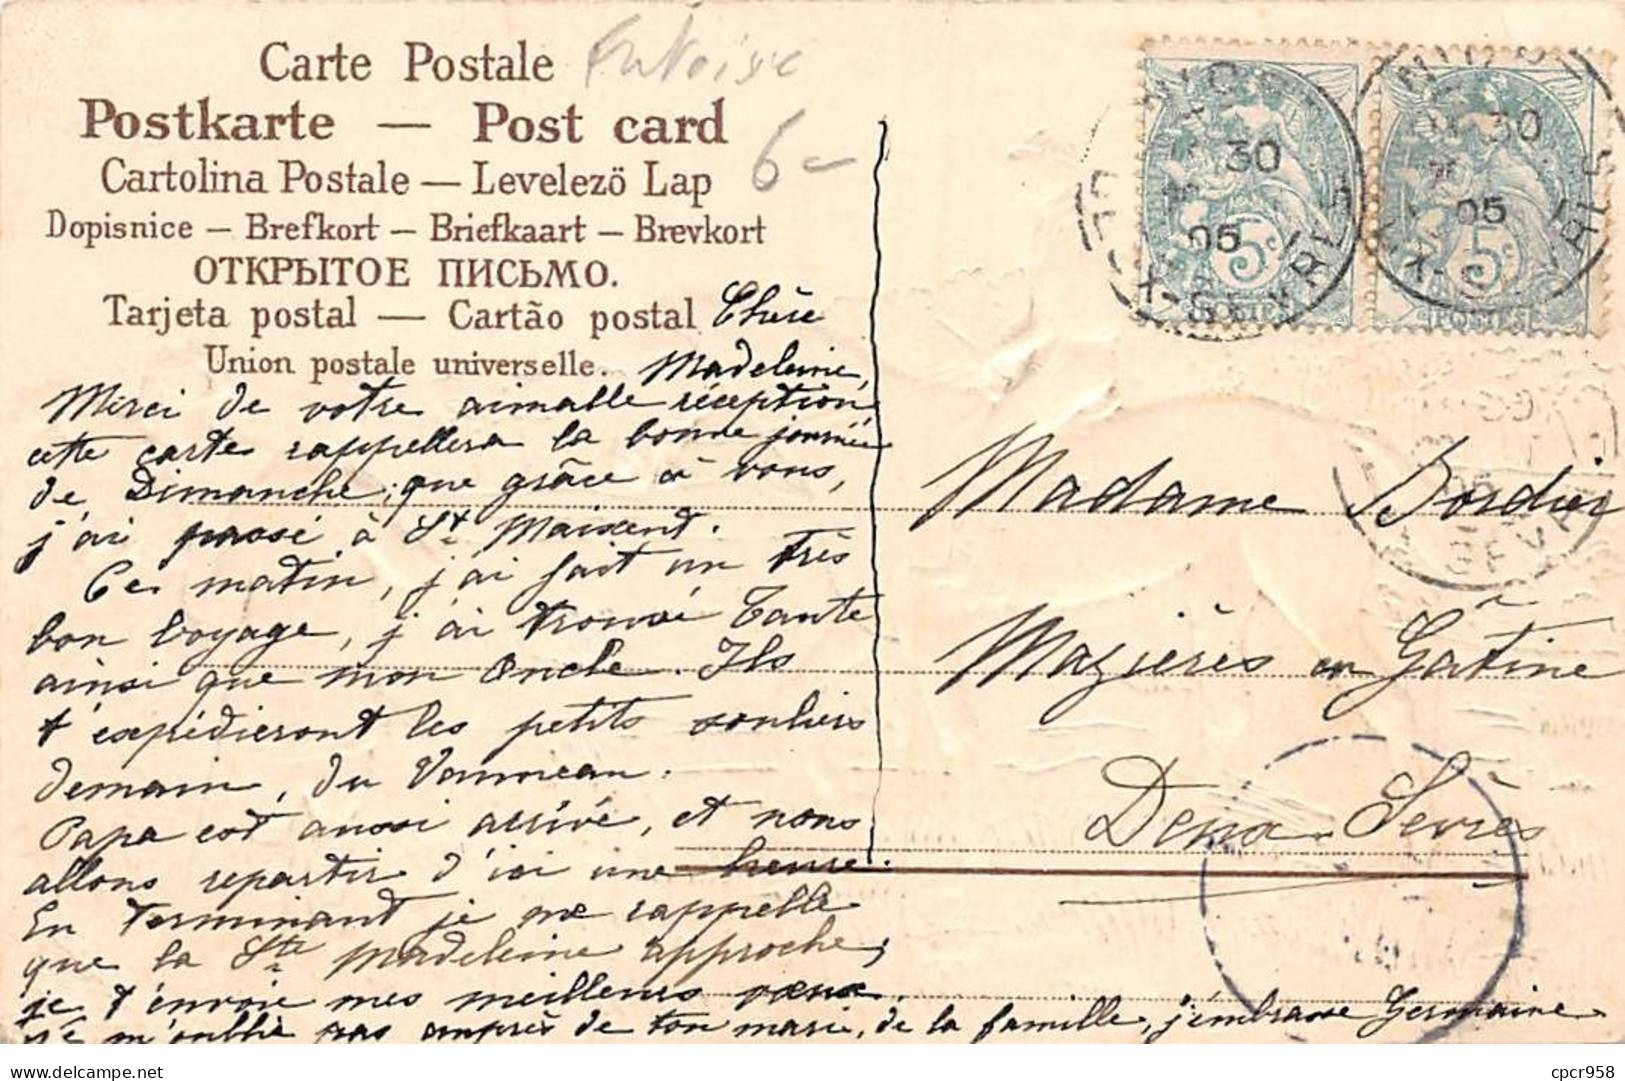 Carte Postale
Postkarte — Post card
6-
Cartolina Postale — Levelezö Lap
Dopisnice — Brefkort — Briefkaart — Brevkort
ОТКРЫТОЕ ПИСЬМО.
Tarjeta postal — Cartão postal
Union postale universelle.
Chère
Madeleine,
Merci de votre aimable réception
cette carte rappellera la bonne journée
de Dimanche, que grâce à vous,
j'ai passé à St Maixent.
Ce matin, j'ai fait un très
bon voyage, j'ai trouvé Tante
ainsi que mon Oncle. Ils
t'expédieront les petits souliers
demain, du
Papa est aussi arrivé, et nous
allons repartir d'ici une heure.
En terminant je me rappelle
que la Ste Madeleine approche,
je t'envoie mes meilleurs vœux.
m'oublie pas auprès de ton mari, de la famille, j'embrasse Germaine
Madame Bordier
Mazières en Gâtine
Deux-Sèvres
30
05
5c
POSTES
30
05
5c
POSTES
cpcr958